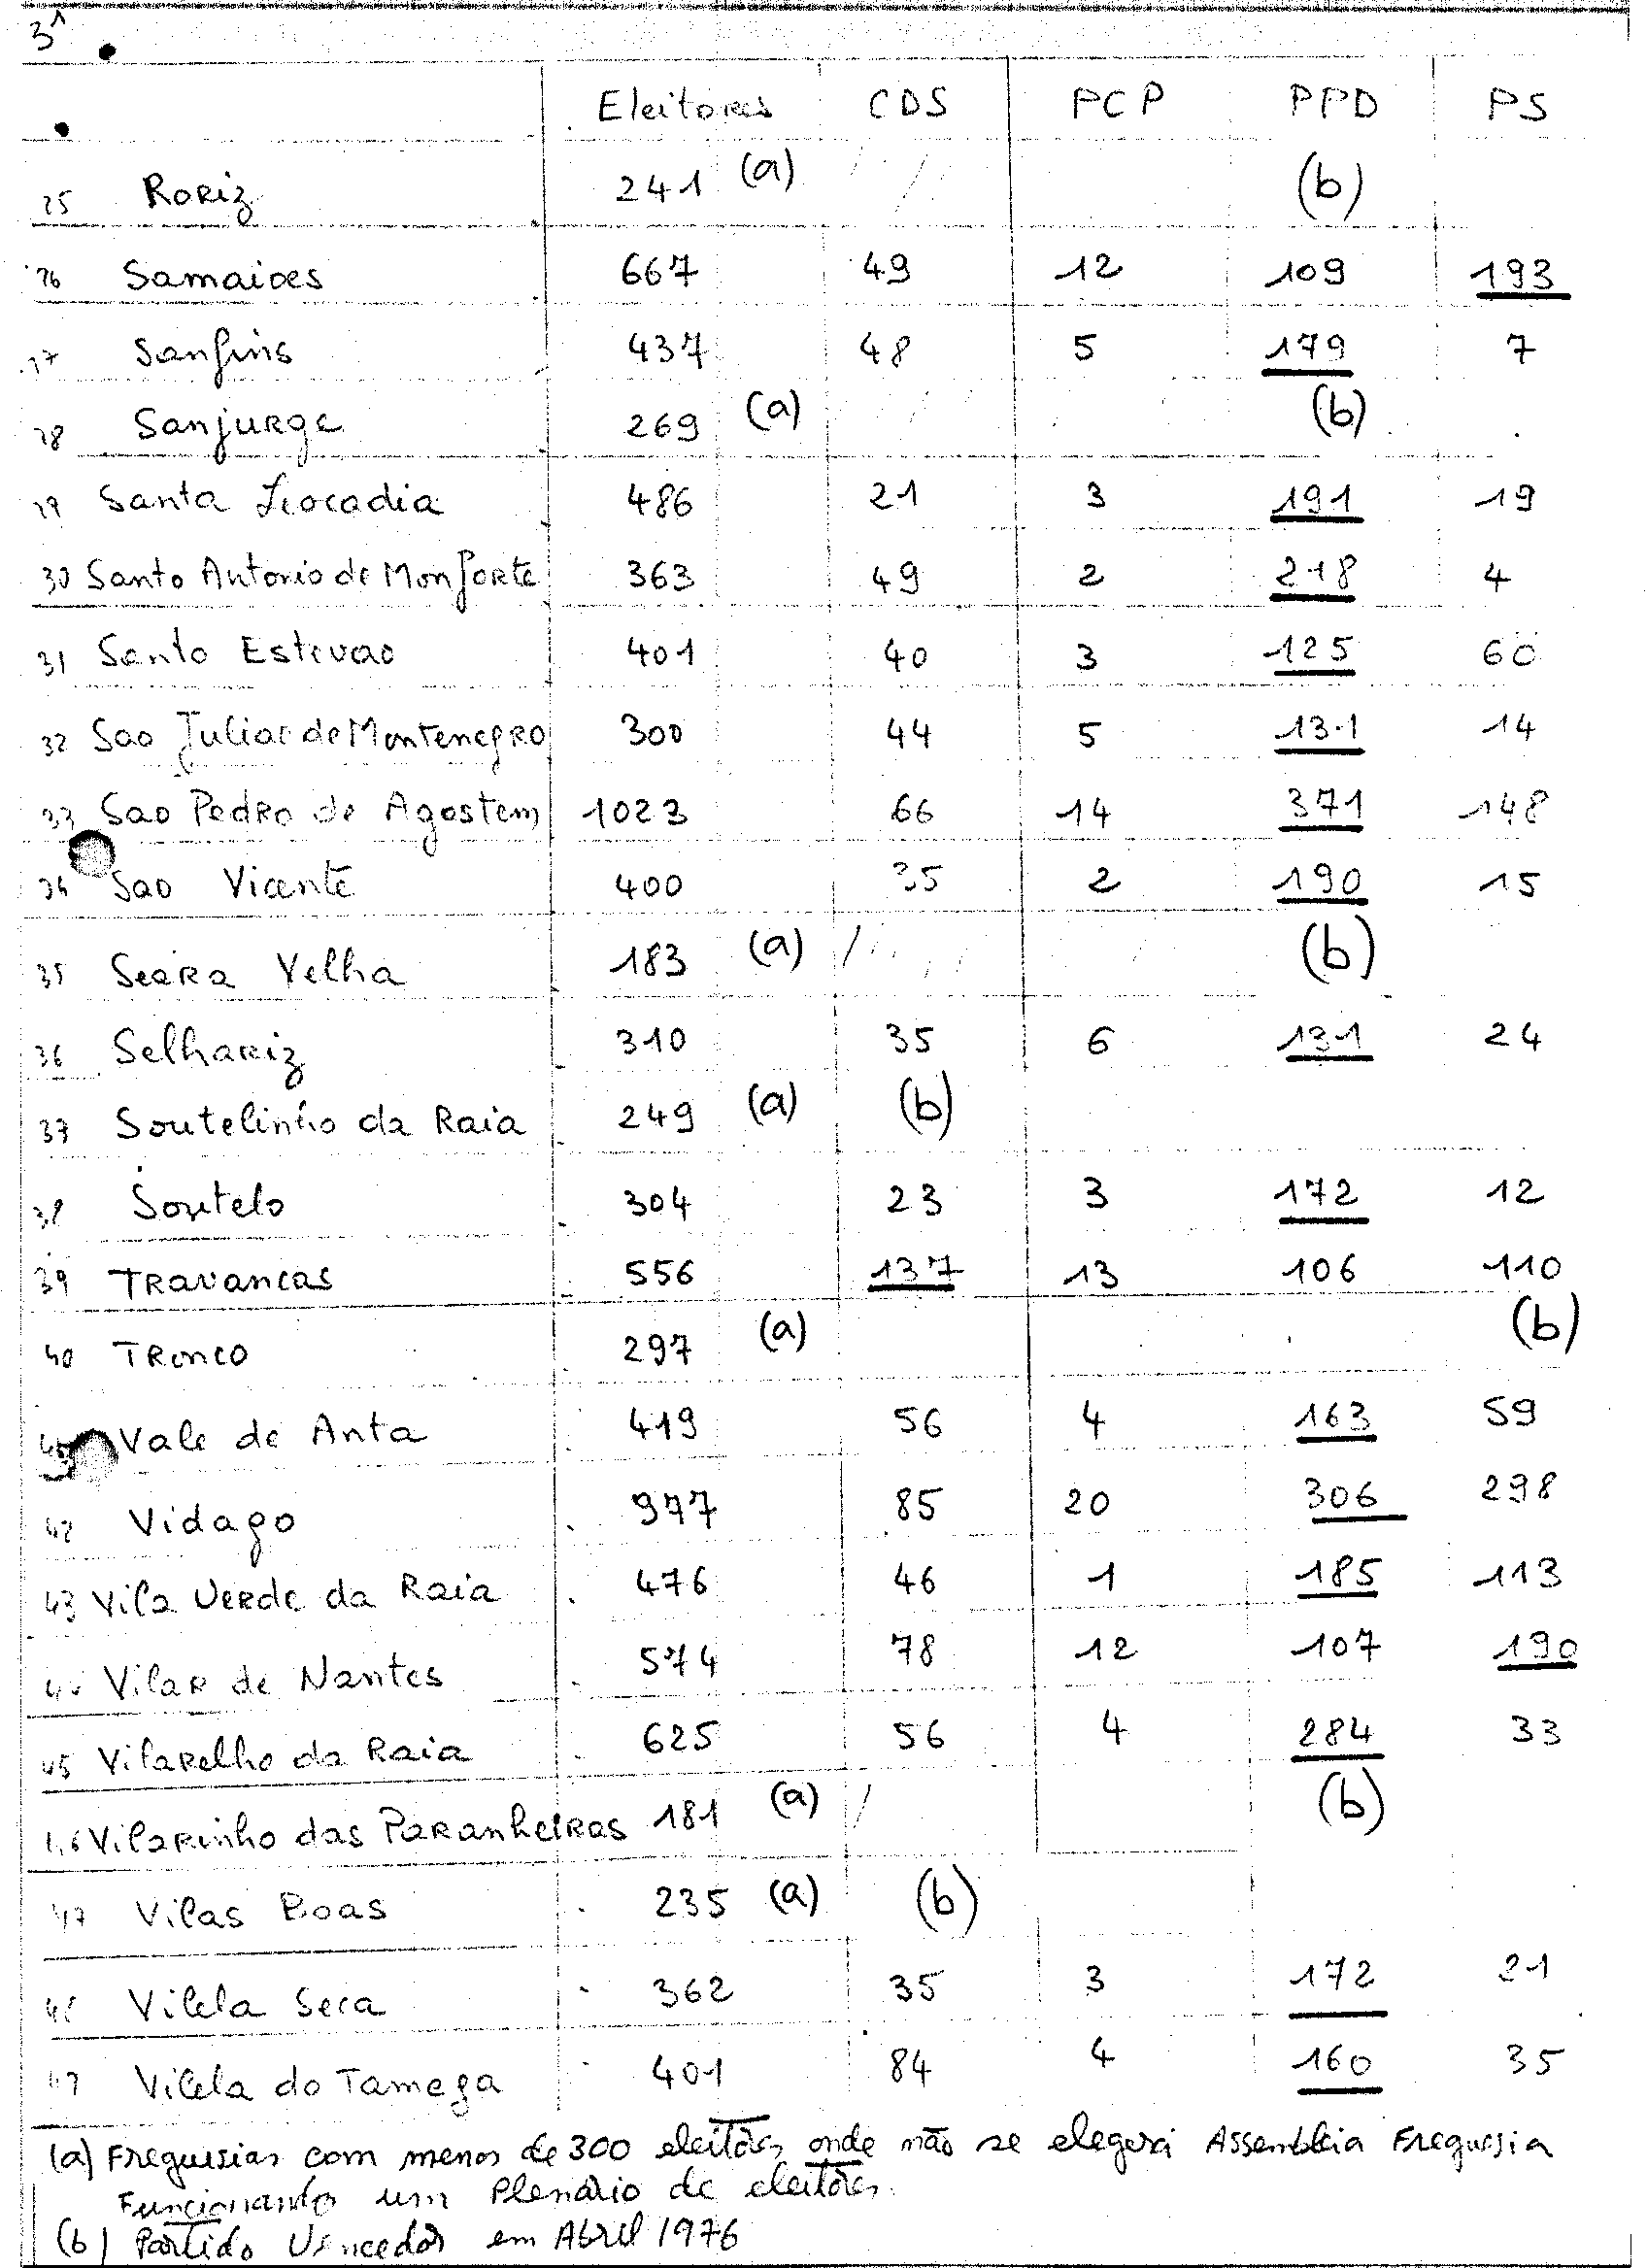 3
Eleitores CDS PCP PPD PS
25 Roriz 241 (a) (b)
26 Samaioes 667 49 12 109 193
27 Sanfins 437 48 5 179 7
28 Sanjurge 269 (a) (b)
29 Santa Leocadia 486 21 3 191 19
30 Santo Antonio de Monforte 363 49 2 218 4
31 Santo Estevao 401 40 3 125 60
32 Sao Juliao de Montenegro 300 44 5 131 14
33 Sao Pedro de Agostem 1023 66 14 371 148
34 Sao Vicente 400 35 2 190 15
35 Seara Velha 183 (a) (b)
36 Selhariz 310 35 6 131 24
37 Soutelinho da Raia 249 (a) (b)
38 Soutelo 304 23 3 172 12
39 Travancas 556 137 13 106 110
40 Tronco 297 (a) (b)
Vale de Anta 419 56 4 163 59
42 Vidago 977 85 20 306 298
43 Vila Verde da Raia 476 46 1 185 113
44 Vilar de Nantes 574 78 12 107 190
45 Vilarelho da Raia 625 56 4 284 33
46 Vilarinho das Paranheiras 181 (a) (b)
47 Vilas Boas 235 (a) (b)
48 Vilela Seca 362 35 3 172 21
49 Vilela do Tamega 401 84 4 160 35
(a) Freguesias com menos de 300 eleitores, onde não se elegerá Assembleia Freguesia
Funcionando um Plenário de eleitores.
(b) Partido Vencedor em Abril 1976